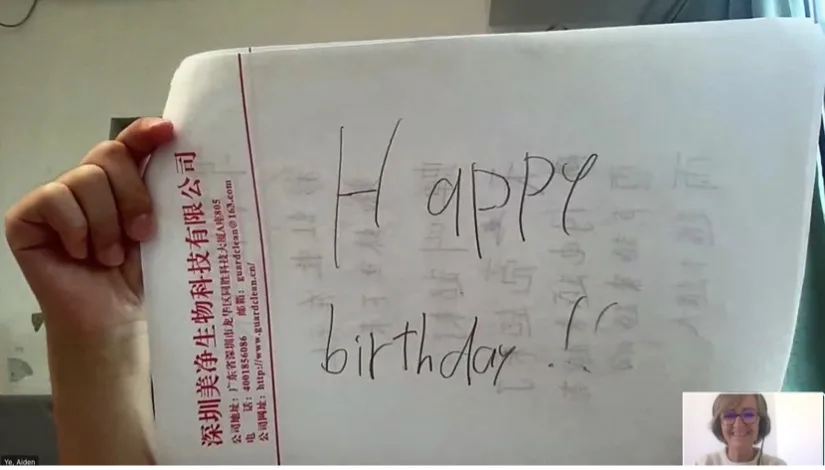 Happy
birthday!!
深圳美净生物科技有限公司
公司地址：广东省深圳市龙华区同胜科技大厦A座805
电 话：4001856086 邮箱：guardclean@163.com
公司网址：http://www.guardclean.cn/
Ye, Aiden